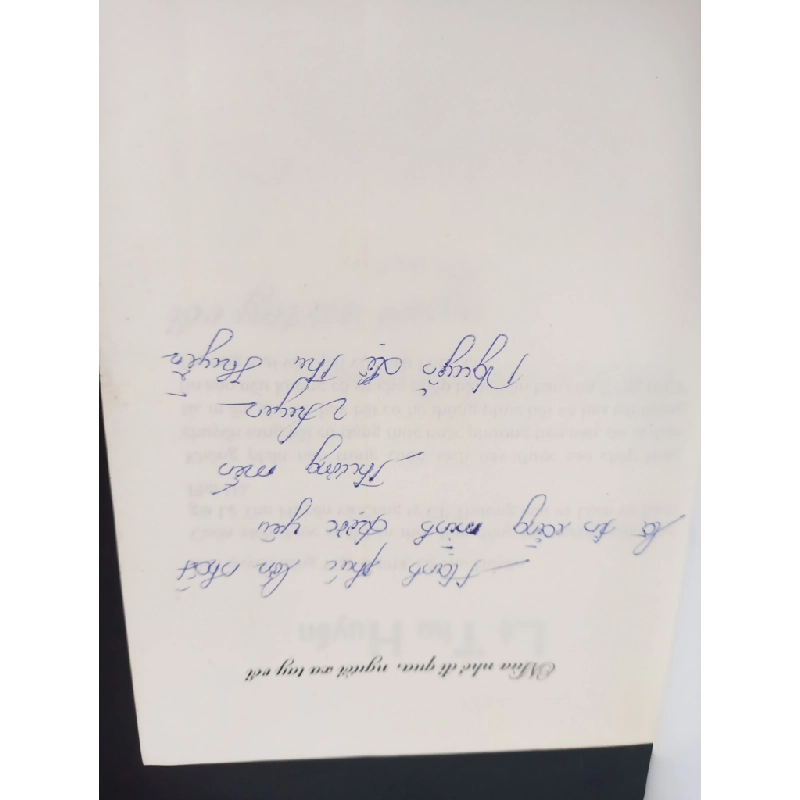 Mùa nhớ đi qua, người xa tay với
Hạnh phúc lớn nhất
là tin rằng mình được yêu
Thương mến
Huyền
Nguyễn Lê Thu Huyền